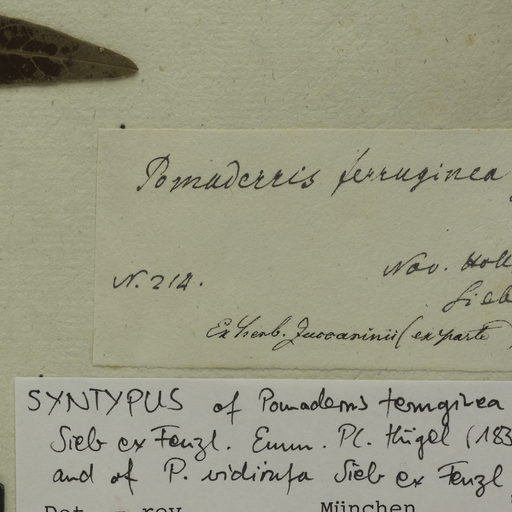 Pomaderris ferruginea
N. 214.
Nov. Holl
Sieb
Ex herb. Zuccarinii (ex parte)
SYNTYPUS of Pomaderris ferruginea
Sieb ex Fenzl. Enum. Pl. Hügel (183
and of P. viridirufa Sieb ex Fenzl
Det. rev. München